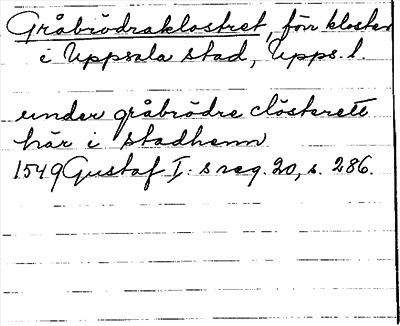 Gråbrödraklostret, förr kloster
i Uppsala stad, Upps. l.
under gråbrödre clösterett
här i stadhenn
1549 Gustaf I: s reg. 20, s. 286.